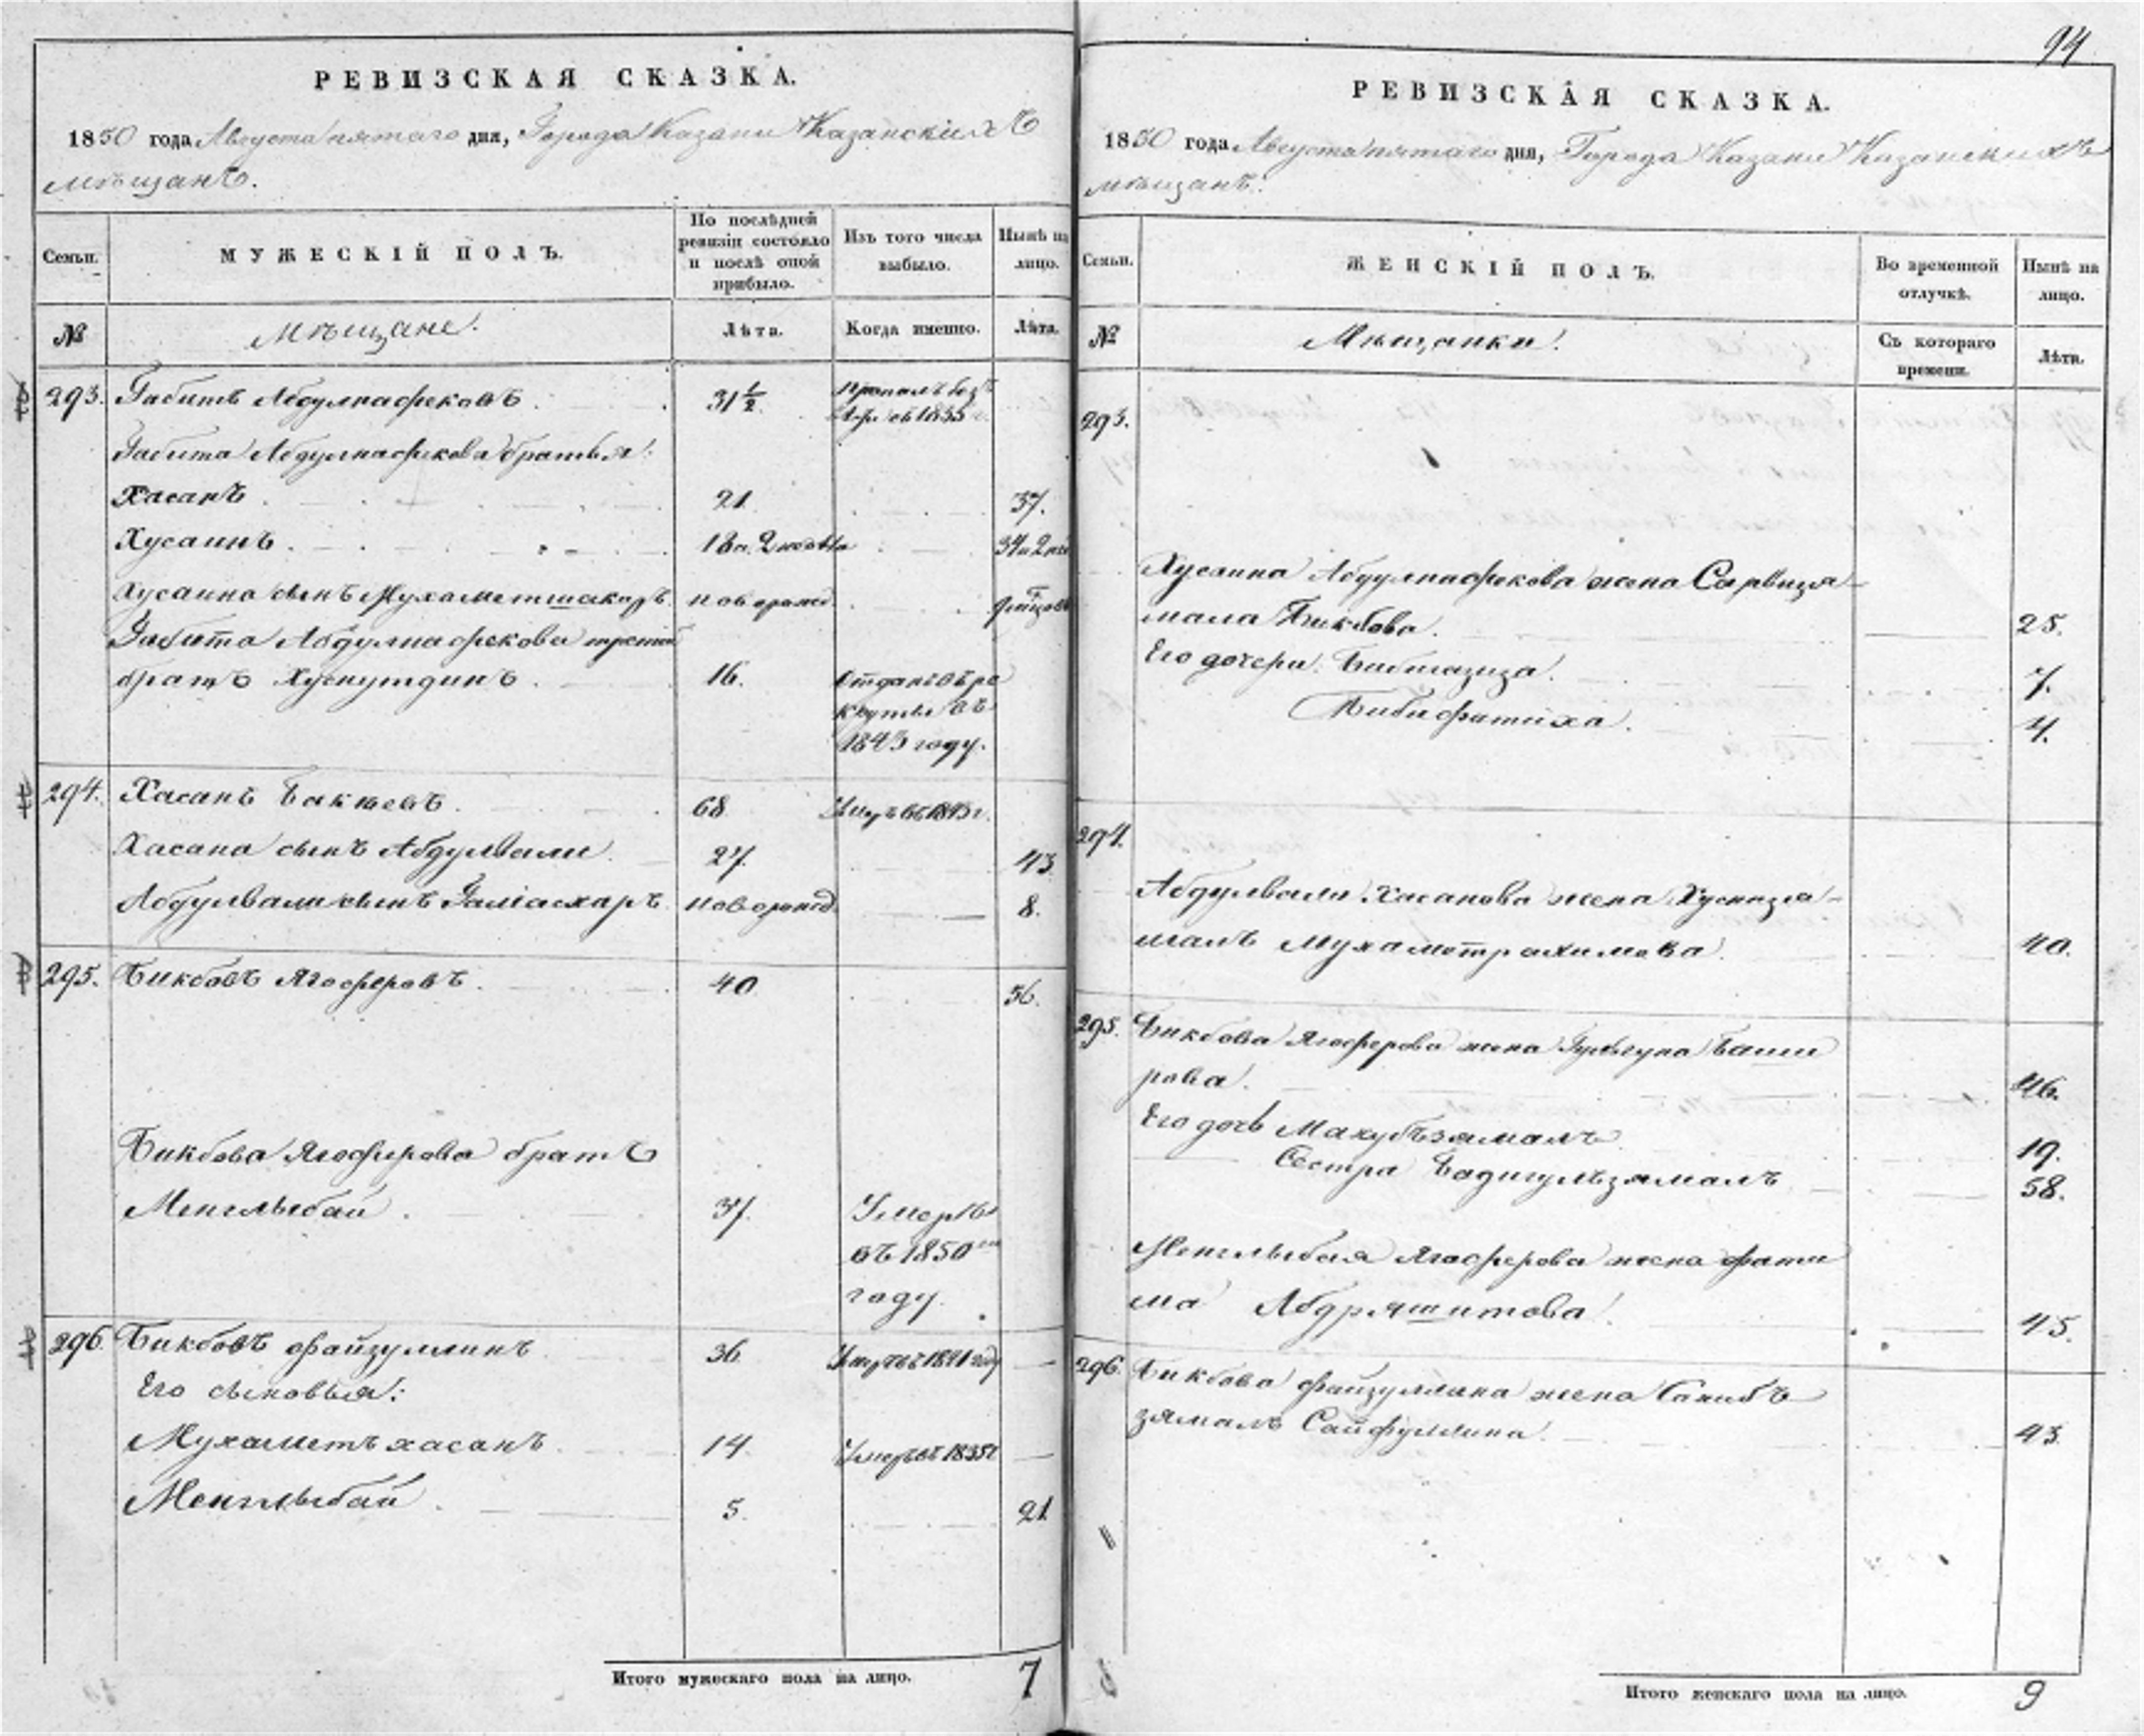 РЕВИЗСКАЯ СКАЗКА.
1850 года Августа пятаго дня, Города Казани Казанскихъ
мѣщанъ.
Семьи.
МУЖЕСКІЙ ПОЛЪ.
По послѣдней
ревизіи состояло
и послѣ оной
прибыло.
Изъ того числа
выбыло.
Нынѣ на
лицо.
№
Мѣщане.
Лѣта.
Когда именно.
Лѣта.
293. Габитъ Абдулнафековъ 31½ пропалъ безъ
въ 1835 г.
Габита Абдулнафекова братья:
Хасанъ 21 37.
Хусаинъ 18 и 2 34 и 2
Хусаина сынъ Мухаметшакиръ новорожд
Габита Абдулнафекова третій
братъ Хуснутдинъ 16. Отданъ въ ре
круты въ
1843 году.
294. Хасанъ Бакѣевъ 68 Умеръ въ 1843 г.
Хасана сынъ Абдулвали 27. 43
Абдулвали сынъ Галіаскаръ новорожд 8.
295. Бикбовъ Ягоферовъ 40 56.
Бикбова Ягоферова братъ
Менглыбай 37. Умеръ
въ 1850
году.
296 Бикбовъ Файзуллинъ 36 Умеръ въ 1841 году
Его сыновья:
Мухаметъ хасанъ 14 Умеръ въ 1835 г
Менглыбай 5. 21
Итого мужескаго пола на лицо. 7
94
РЕВИЗСКАЯ СКАЗКА.
1850 года Августа пятаго дня, Города Казани Казанскихъ
мѣщанъ.
Семьи.
ЖЕНСКІЙ ПОЛЪ.
Во временной
отлучкѣ.
Нынѣ на
лицо.
№
Мѣщанки.
Съ котораго
времени.
Лѣта.
293.
Хусаина Абдулнафекова жена Сарвиза-
мала Бикбова. 25.
Его дочери: Бибигазиза. 7.
Бибифатиха. 4.
294.
Абдулвали Хасанова жена Хуснизя-
малъ Мухаметрахимова. 40.
295. Бикбова Ягоферова жена Баши
рова. 46.
Его дочь Махубьзямалъ 19.
Сестра Бадигульзямалъ 58.
Менглыбая Ягоферова жена Фати
ма Абдряшитова. 45.
296. Бикбова Файзуллина жена
зямалъ Сайфуллина. 43
Итого женскаго пола на лицо. 9